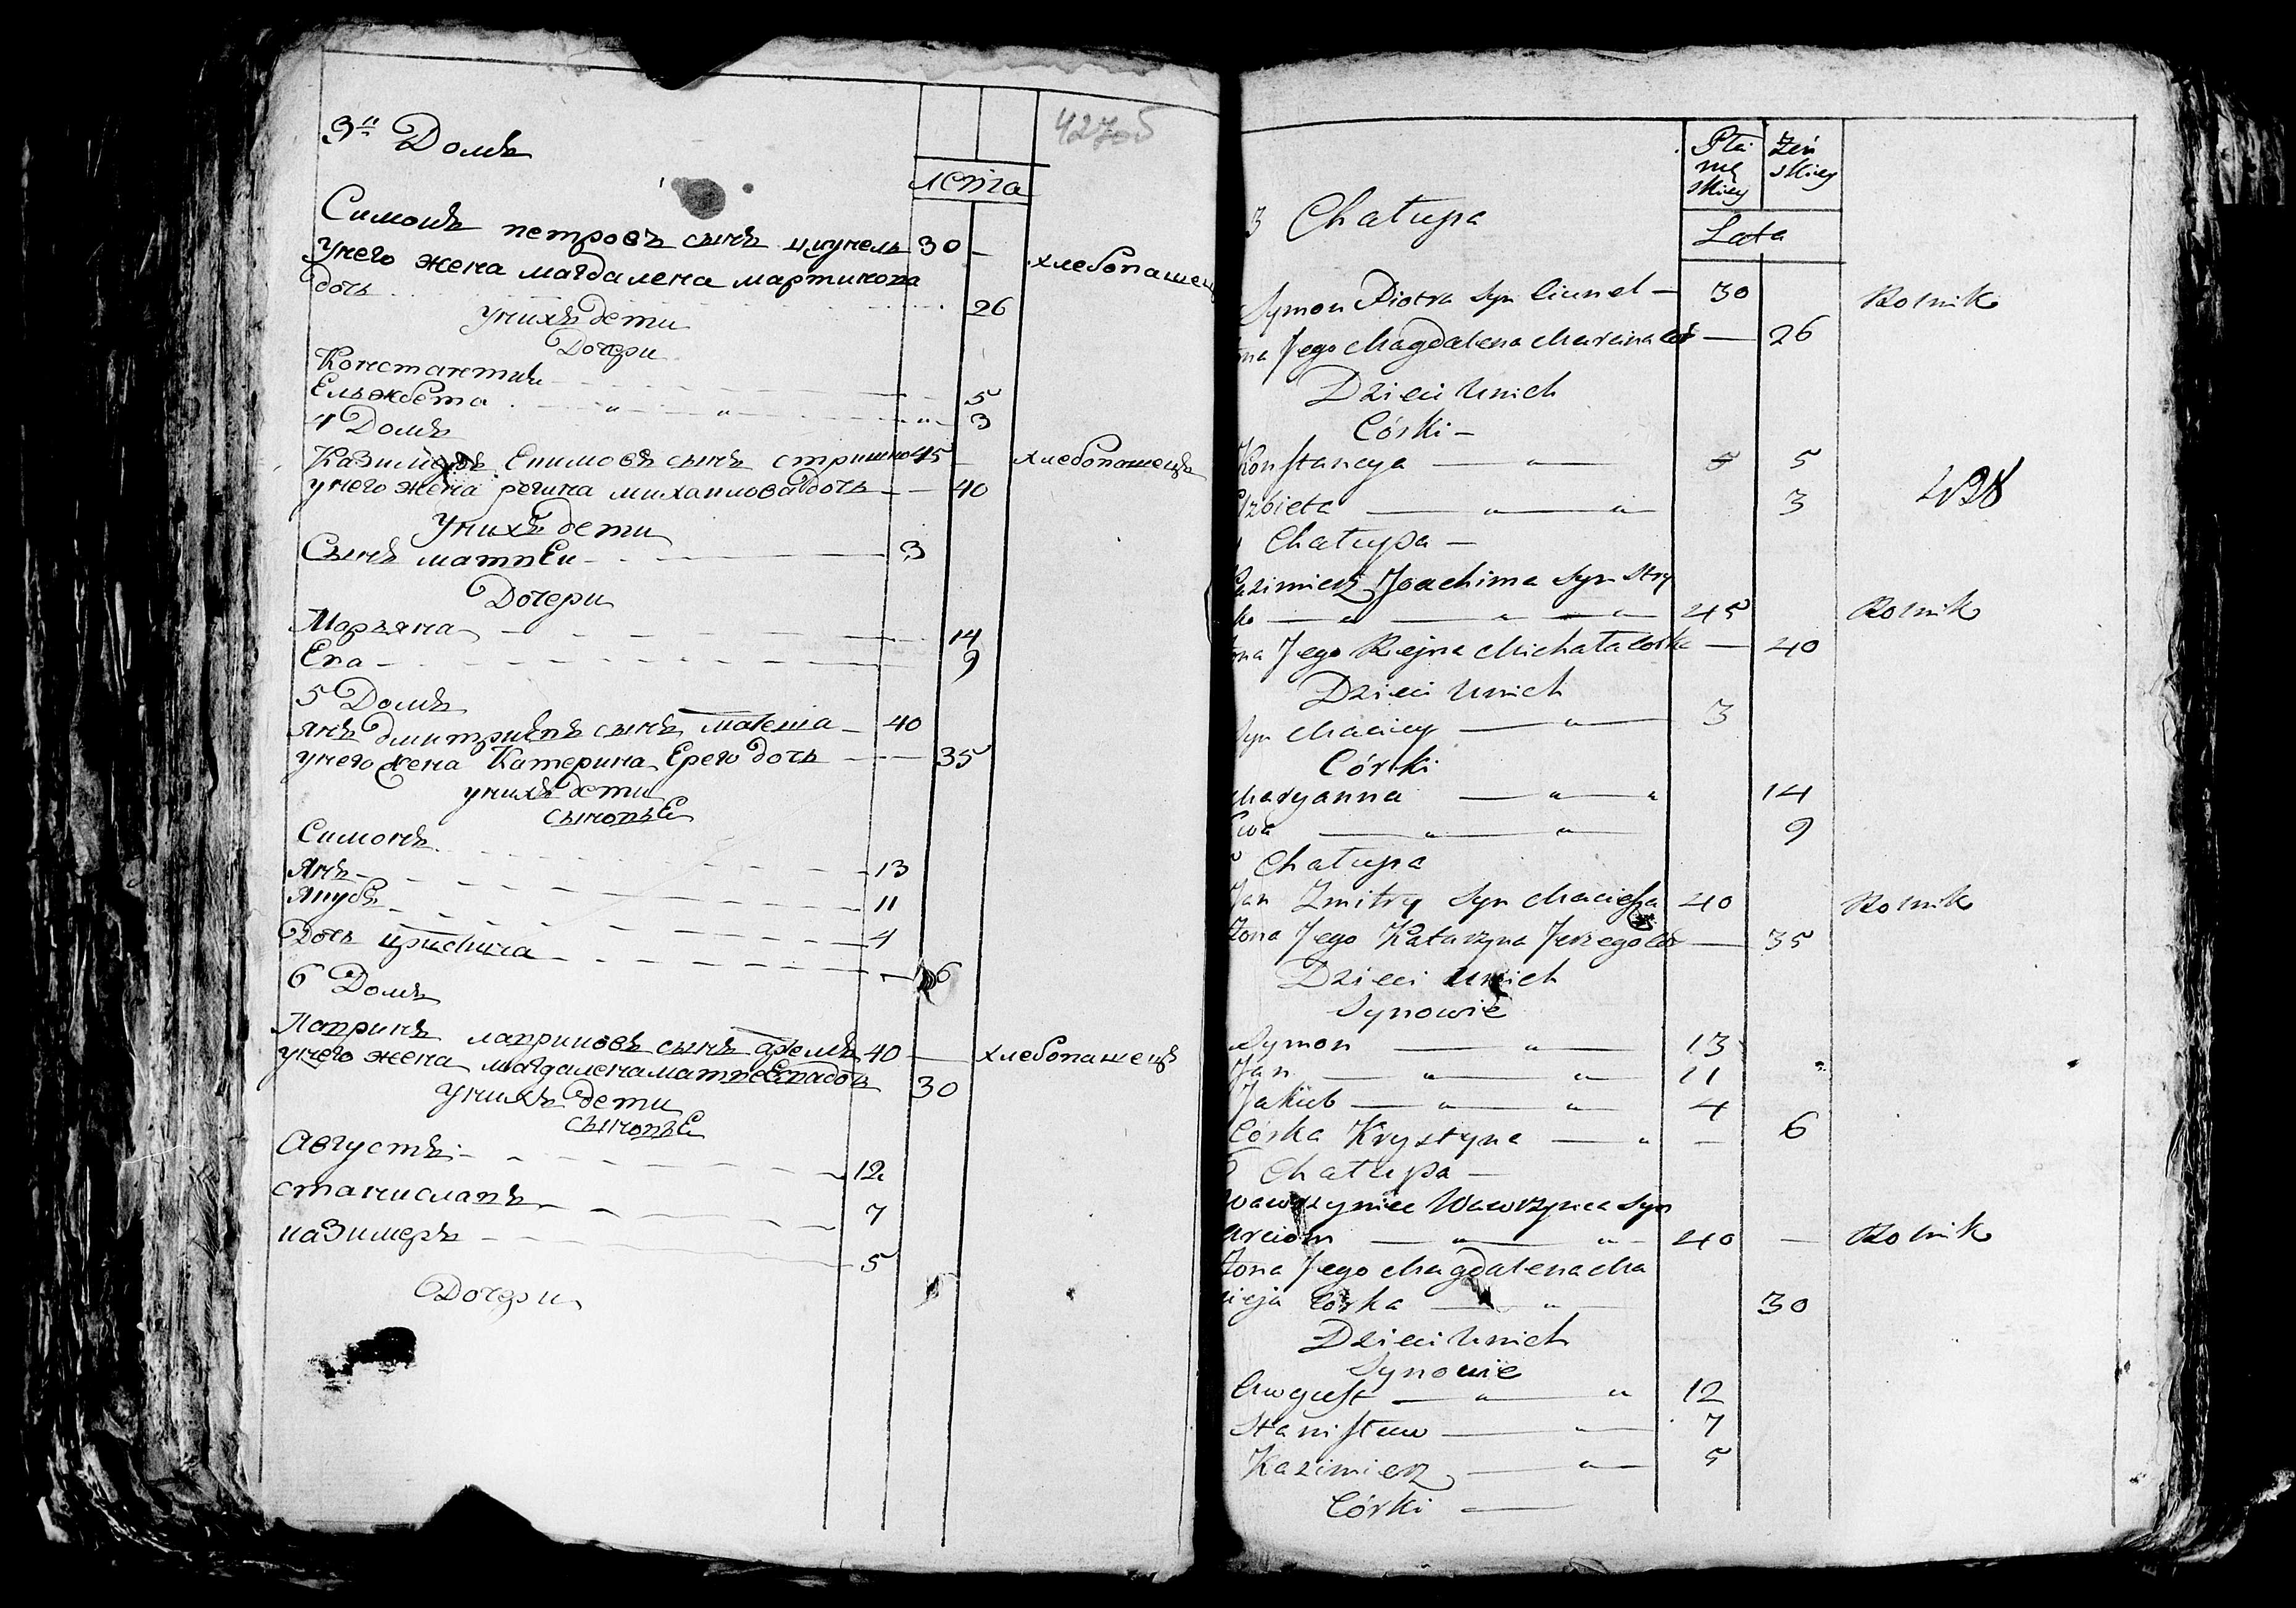 427об
3й Домъ
лета
Симонъ петровъ сынъ цюнель 30 — хлебопашец
унего жена магдалена мартинова
дочь 26
унихъ дети
Дочери
Константия 5
Ельжбета " " " 3
4 Домъ
Казимеръ Екимовъ сынъ стришко 45 — хлебопашецъ
унего жена регина михаилова дочь — — 40
Унихъ дети
Сынъ матпеи 3
Дочери
Маръяна 14
Епа 9
5 Домъ
янъ дмитриепъ сынъ 40
унего жена Катерина Ерего дочь — — 35
унихъ дети
сынопъе
Симонъ 13
Янъ 11
Якубъ 4
Дочь христина 6
6 Домъ
Лапринъ лаприновъ сынъ 40 — хлебопашецъ
унего жена магдалена матпеепа дочь 30
Унихъ дети
сынопъе
Августъ 12
станислапъ 7
казимеръ 5
Дочери
Płci męskiey Żeńskiey
3 Chałupa
Lata
Symon Piotra Syn Ciunel — 30 Rolnik
Jego Magdalena Marcina Cór — 26
Dzieci Unich
Córki —
Konstancya — " — 5 5
Elzbieta — " — " 3
428
Chałupa —
Kazimierz Joachima Syn Stry
ko — " — " — " 45 Rolnik
żona Jego Rejna Michała Corka — 40
Dzieci Unich
Syn Maciey — " — 3
Córki
Maryanna — " — " 14
Ewa — " — " 9
Chałupa
Jan Zmitry Syn 40 Rolnik
Żona Jego Katarzyna Jerzego Cór — 35
Dzieci Unich
Synowie
Symon — " — 13
Jan — " — " — 11
Jakub — " — " — 4
Córka Krystyna — " — 6
Chałupa —
Wawrzyniec Wawrzynca Syn
— " — " — 40 — Rolnik
Żona Jego Magdalena Ma
cieja Córka — " — 30
Dzieci Unich
Synowie
August — " — " 12
Stanisław — " — 7
Kazimierz — " — 5
Córki —